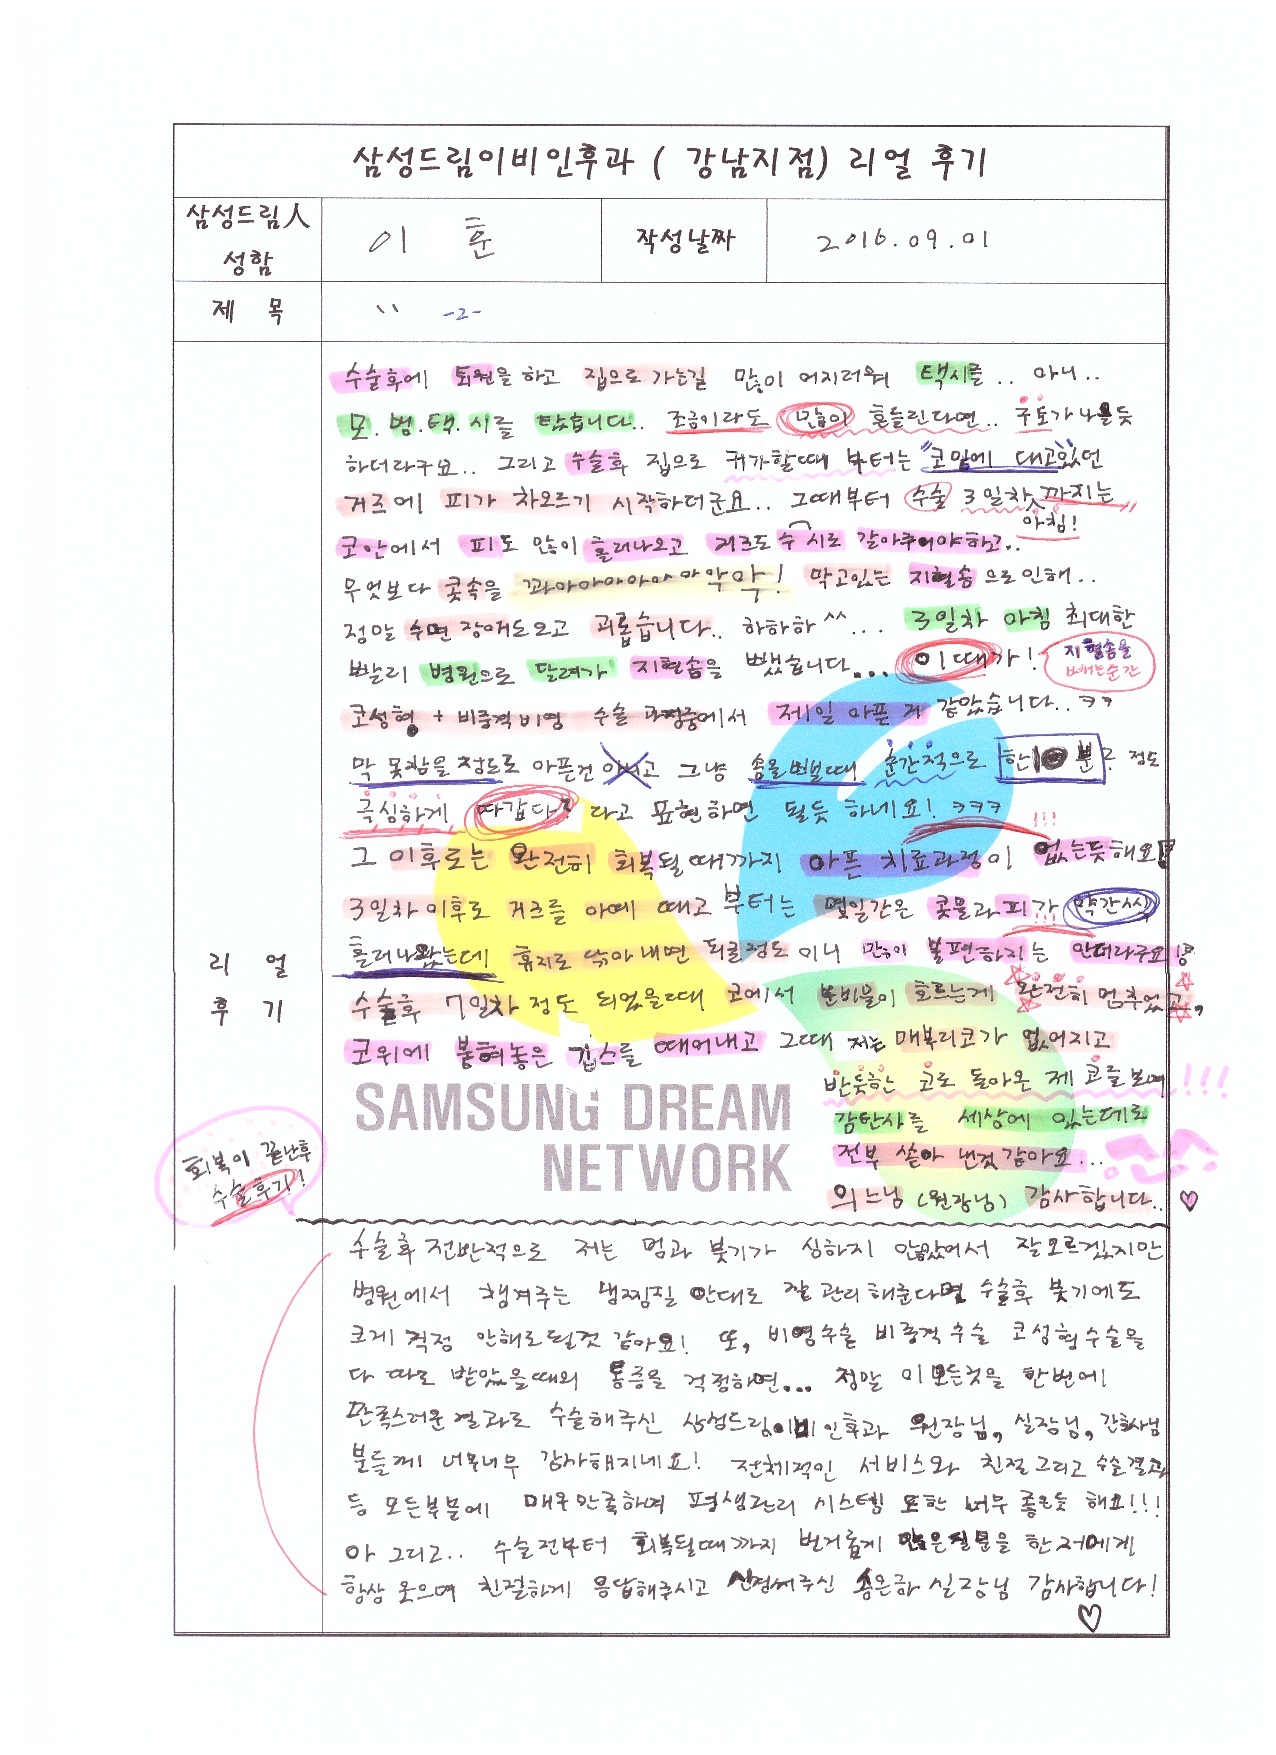 삼성드림이비인후과 ( 강남지점) 리얼 후기
삼성드림人
성함
이 훈
작성날짜
2016.09.01
제 목
\\ -2-
수술후에 퇴원을 하고 집으로 가는길 많이 어지러워 택시를.. 아니..
모.범.택.시를 탔습니다.. 조금이라도 많이 흔들린다면.. 구토가 나올듯
하더라구요.. 그리고 수술후 집으로 귀가할때 부터는 "코밑에 대고있던
거즈에 피가 차오르기 시작하더군요.. 그때부터 수술 3일차 까지는
아침!
코안에서 피도 많이 흘러나오고 거즈도 수시로 갈아주어야하고..
무엇보다 콧속을 꽈아아아아아아악악! 막고있는 지혈솜 으로인해..
정말 수면 장애도오고 괴롭습니다.. 하하하^^... 3일차 아침 최대한
빨리 병원으로 달려가 지혈솜을 뺐습니다... 이때가!
지혈솜을
빼는순간
코성형 + 비중격비염 수술 과정중에서 제일 아픈 거 같았습니다..ㅋㅋ
막 못참을 정도로 아픈건 고 그냥 솜을 빼낼때 순간적으로 한10분 정도
극심하게 따갑다? 라고 표현하면 될듯 하네요! ㅋㅋㅋ
!!!
그 이후로는 완전히 회복될때까지 아픈 치료과정이 없는듯해요!
3일차이후로 거즈를 아예 때고 부터는 몇일간은 콧물과피가 약간씩
흘러나왔는데 휴지로 닦아내면 되굴정도 이니 많이 불편하지는 안더라구요!
수술후 7일차 정도 되었을때 코에서 분비물이 흐르는게 완전히 멈추었고,
코위에 붙혀놓은 깁스를 때어내고 그때 저는 매부리코가 없어지고
반듯한 코로 돌아온 제 코를보며 !!!
감탄사를 세상에 있는데로
전부 쏟아 낸것 같아요...
의느님 (원장님) 감사합니다.. ♡
리 얼
후 기
회복이 끝난후
수술후기!
수술후 전반적으로 저는 멍과 붓기가 심하지 않았어서 잘모르겠지만
병원에서 챙겨주는 냉찜질 안대로 잘 관리해준다면 수술후 붓기에도
크게 걱정 안해도될것 같아요! 또, 비염수술 비중격 수술 코성형수술을
다 따로 받았을때의 통증을 걱정하면... 정말 이모든것을 한번에!
만족스러운 결과로 수술해주신 삼성드림이비인후과 원장님, 실장님, 간호사님
분들께 너무너무 감사해지네요! 전체적인 서비스와 친절그리고 수술결과
등 모든부분에 매우만족하며 평생관리 시스템 또한 너무 좋은듯 해요!!!
아 그리고.. 수술전부터 회복될때까지 번거롭게 많은질문을 한저에게
항상 웃으며 친절하게 응답해주시고 신경써주신 송은하 실장님 감사합니다!
♡
SAMSUNG DREAM
NETWORK